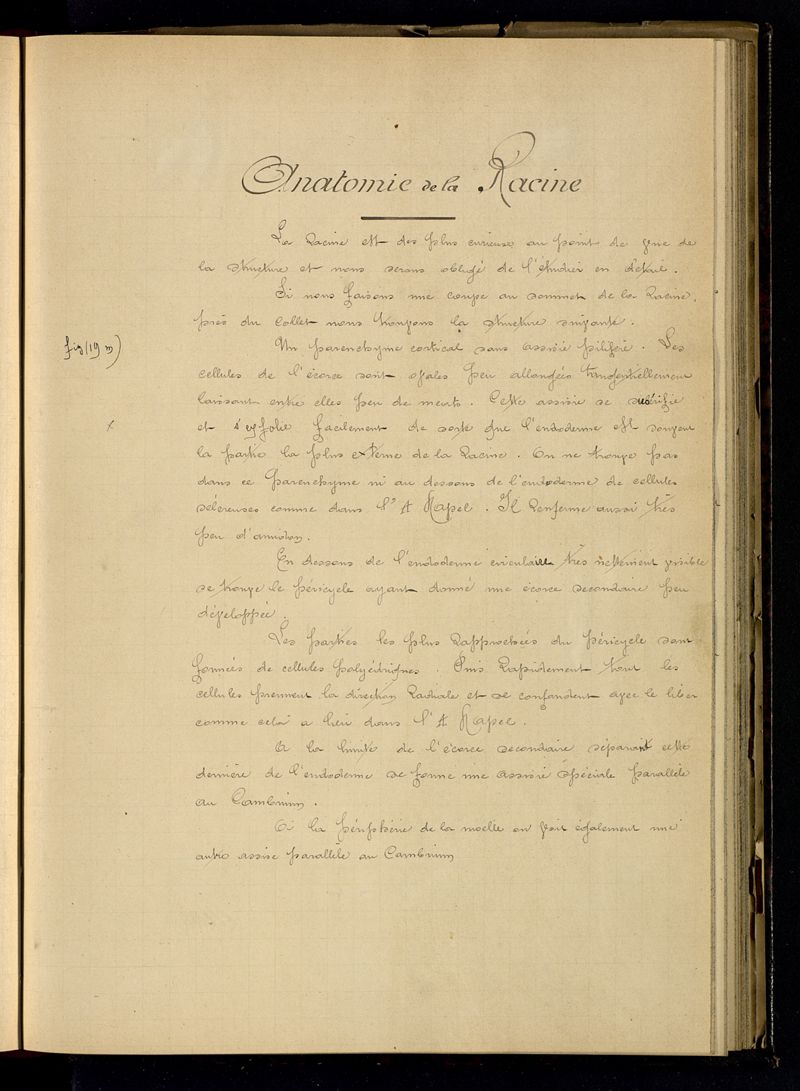 Anatomie de la Racine
La Racine est des plus curieuse au point de vue de
la structure et nous serons obligé de l'étudier en détail.
Si nous faisons une coupe au sommet de la Racine,
près du collet nous trouvons la structure suivante.
fig (19
Un parenchyme cortical sans assise pilifère. Les
cellules de l'écorce sont ovales peu allongées tangentiellement
laissant entre elles peu de meats. Cette assise se subérifie
x
et s'exfolie facilement de sorte que l'endoderme est souvent
la partie la plus externe de la Racine. On ne trouve pas
dans ce Parenchyme ni au dessous de l'endoderme de cellules
scléreuses comme dans l' A Napel. Il Renferme aussi très
peu d'amidon.
En dessous de l'endoderme circulaire très nettement visible
se trouve le péricycle ayant donné une écorce secondaire peu
développée.
Les parties les plus Rapprochées du péricycle sont
formées de cellules polyédriques. Puis Rapidement tout les
cellules prennent la direction Radiale et se confondent avec le liber
comme cela a lieu dans l'A Napel.
A la limite de l'écorce secondaire séparant cette
dernière de l'endoderme se forme une assise spéciale parallèle
au Cambium.
A la périphérie de la moelle on voit également une
autre assise parallèle au Cambium